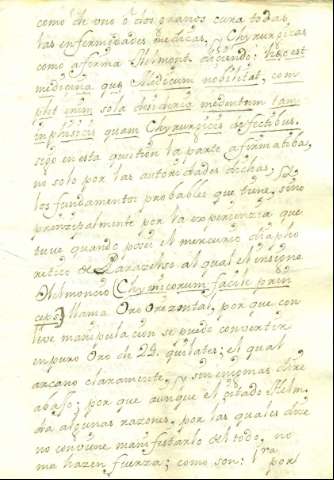 como de uno ò dos granos cura todas
las enfermedades medicas, y Chyrurgicas
como afirma Helmont. diciendo: hæc est
medicina quæ Medicum nobilitat, com
plet enim sola desideria medentum tam
in phisicis quam Chyrurgicis defectibus.
sigo en esta question la parte afirmatiba,
no solo por las autoridades dichas, y
los fundamentos probables que tiene, sino
principalmente por la experiencia que
tuve quando posei el mercurio diapho
retico de Paracelso al qual el insigne
Helmoncio (Chymicorum facile prin
ceps) llama Oro Orizontal, por que con
leve manipulacion se puede convertir
en puro Oro de 24. quilates; el qual
arcano claramente, y sin enigmas dire
abajo; por que aunque el citado Helm.
da algunas razones, por las quales dize
no convine manifestarlo del todo, no
ma hazen fuerza; como son: 1ra
por